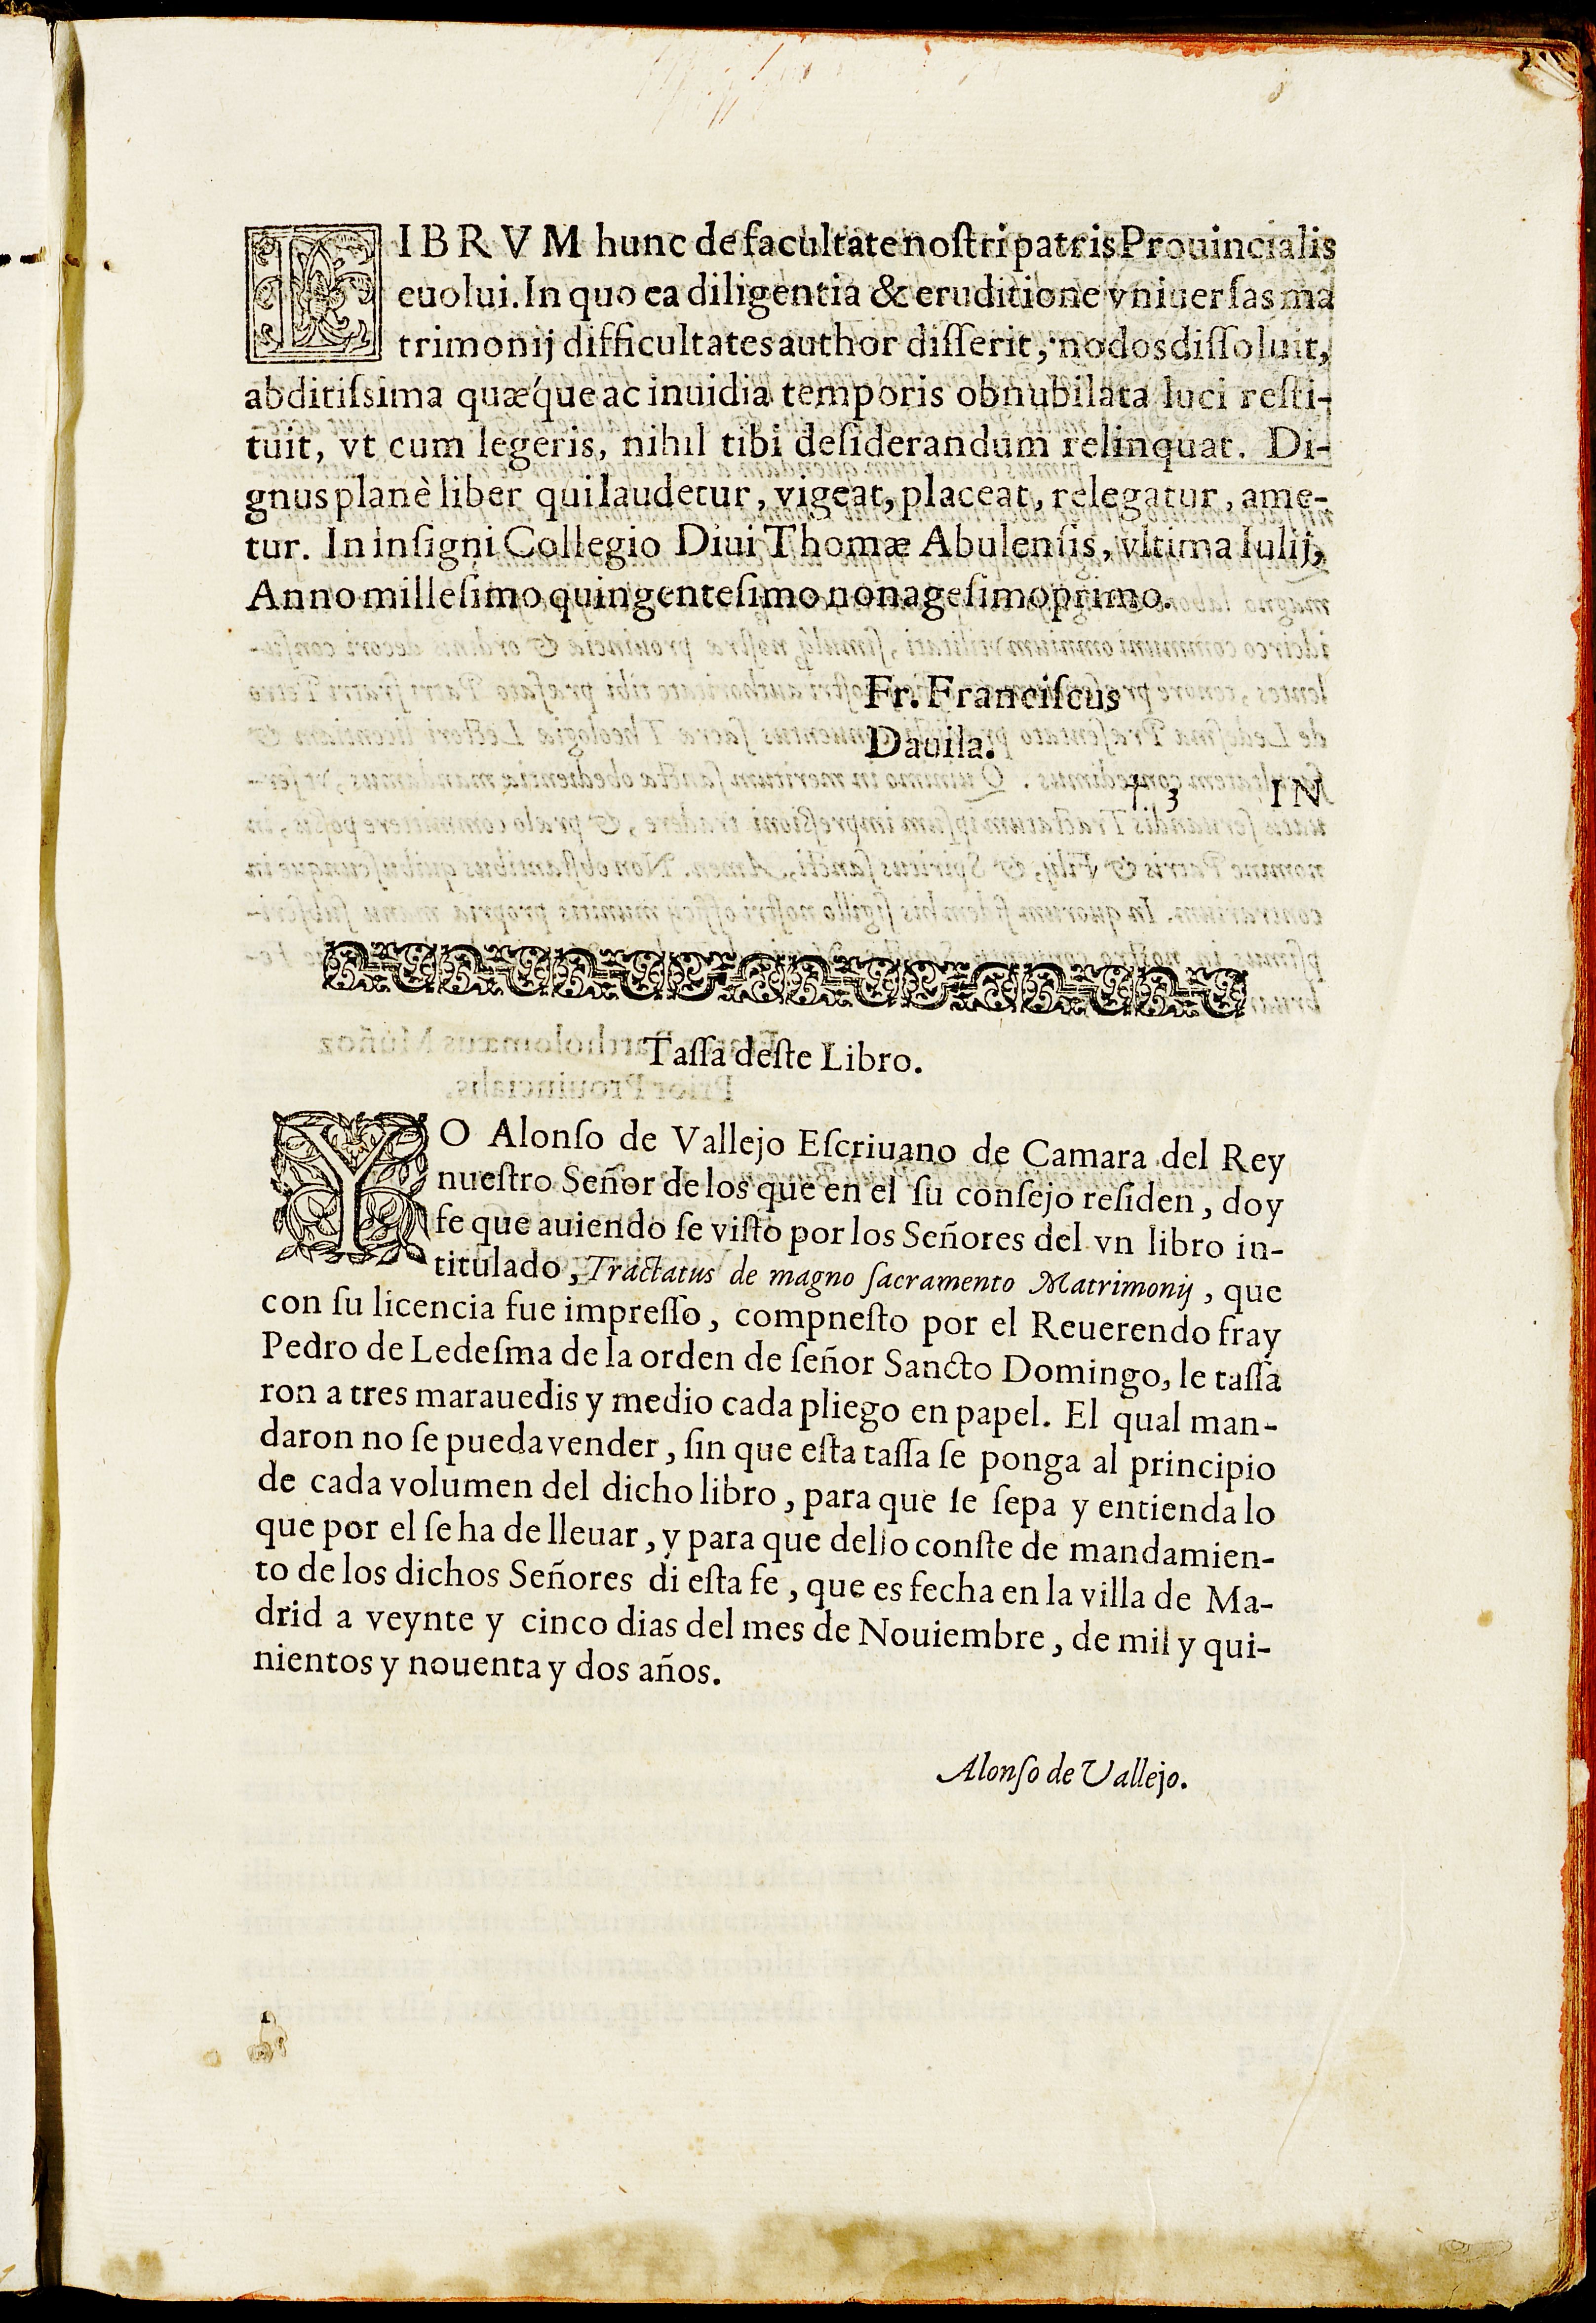 LIBRVM hunc de facultate noſtri patris Prouincialis
euolui. In quo ea diligentia & eruditione vniuerſas ma
trimonij difficultates author diſſerit, nodos diſſoluit,
abditiſsima quæque ac inuidia temporis obnubilata luci reſti-
tuit, vt cum legeris, nihil tibi deſiderandum relinquat. Di-
gnus planè liber qui laudetur, vigeat, placeat, relegatur, ame-
tur. In inſigni Collegio Diui Thomæ Abulenſis, vltima Iulij,
Anno milleſimo quingenteſimo nonageſimo primo.
Fr. Franciſcus
Dauila.
† 3 IN
Taſſa deſte Libro.
YO Alonſo de Vallejo Eſcriuano de Camara del Rey
nueſtro Señor de los que en el ſu conſejo reſiden, doy
fe que auiendo ſe viſto por los Señores del vn libro in-
titulado, Tractatus de magno ſacramento Matrimonij, que
con ſu licencia fue impreſſo, compneſto por el Reuerendo fray
Pedro de Ledeſma de la orden de ſeñor Sancto Domingo, le taſſa
ron a tres marauedis y medio cada pliego en papel. El qual man-
daron no ſe pueda vender, ſin que eſta taſſa ſe ponga al principio
de cada volumen del dicho libro, para que ſe ſepa y entienda lo
que por el ſe ha de lleuar, y para que dello conſte de mandamien-
to de los dichos Señores di eſta fe, que es fecha en la villa de Ma-
drid a veynte y cinco dias del mes de Nouiembre, de mil y qui-
nientos y nouenta y dos años.
Alonſo de Vallejo.